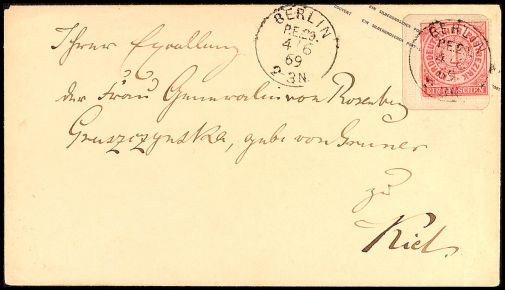 BERLIN
P.E.29.
4 6
69
2-3N.
BERLIN
P.E.29
NORDDEUTSCHER
EIN GROSCHEN
Ihrer Excellenz
der Frau Generalin von Rosenberg
Gruszczynska, geb. von Gruner
zu
Kiel.